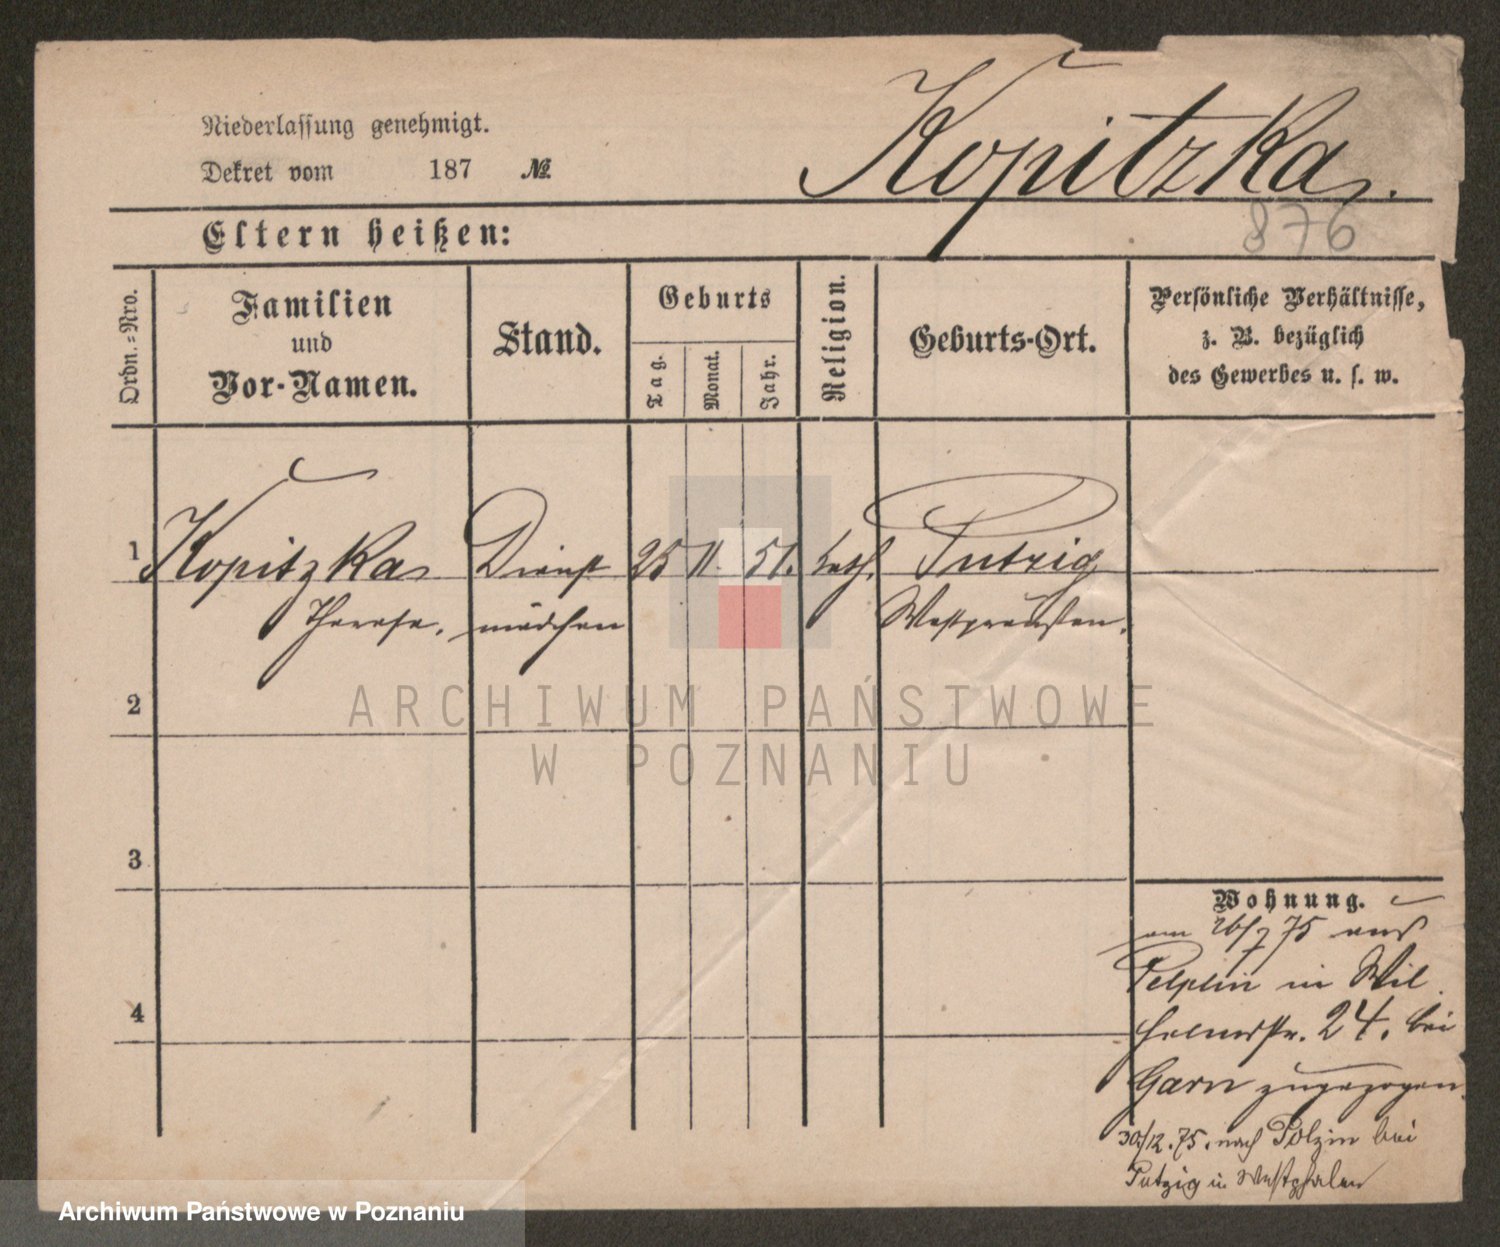 Kopitzka.
Niederlassung genehmigt.
Dekret vom 187 №
876
Eltern heißen:
Ordn.=Nro.
Familien
und
Vor-Namen.
Stand.
Geburts
Tag.
Monat.
Jahr.
Religion.
Geburts-Ort.
Persönliche Verhältnisse,
z. B. bezüglich
des Gewerbes u. s. w.
1 Kopitzka Dienst 25 11. 51. kath. Putzig
Therese. mädchen Westpreußen.
2
3
4
Wohnung.
am 26/7 75 aus
Pelplin in Wil
helmstr. 24. bei
Garn zugezogen.
30/12. 75. nach Polzin bei
Putzig in Westphalen
ARCHIWUM PAŃSTWOWE
W POZNANIU
Archiwum Państwowe w Poznaniu